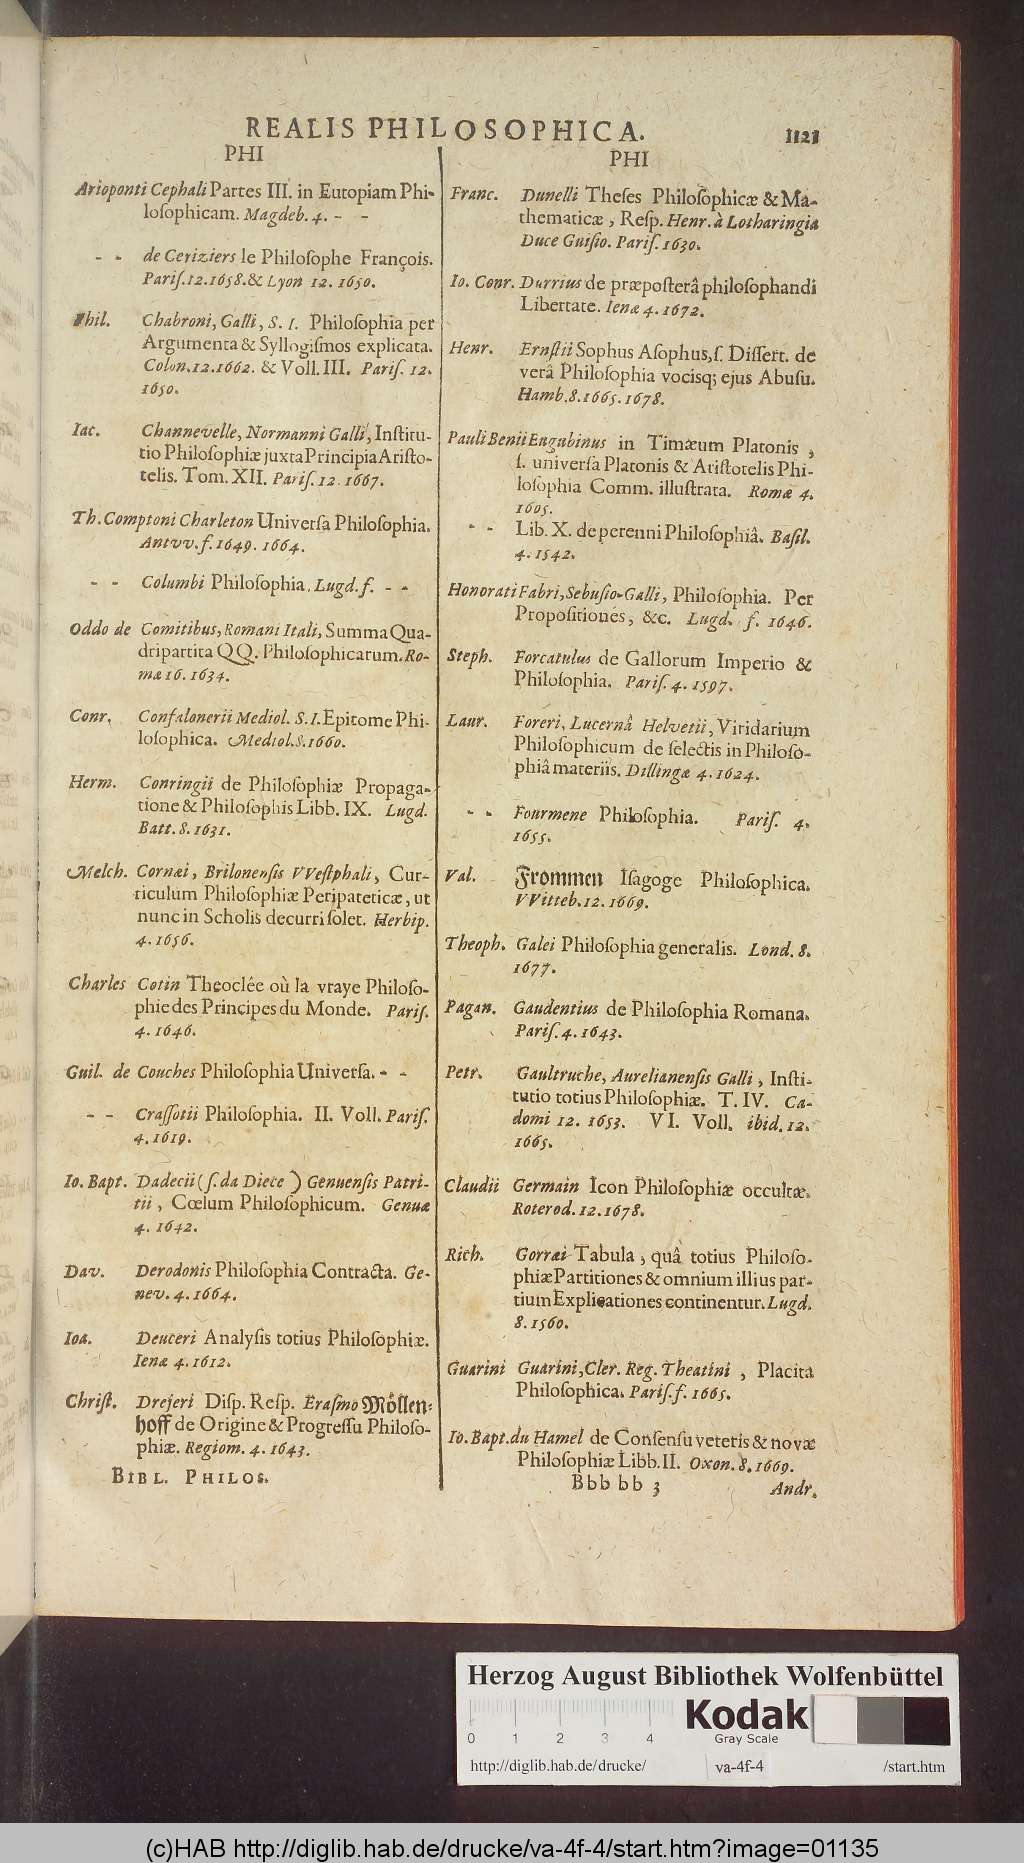 REALIS PHILOSOPHICA. 1121
PHI
Arioponti Cephali Partes III. in Eutopiam Phi-
loſophicam. Magdeb. 4. - -
- - de Ceriziers le Philoſophe François.
Pariſ. 12. 1658. & Lyon 12. 1650.
Phil. Chabroni, Galli, S. I. Philoſophia per
Argumenta & Syllogiſmos explicata.
Colon. 12. 1662. & Voll. III. Pariſ. 12.
1650.
Iac. Channevelle, Normanni Galli, Inſtitu-
tio Philoſophiæ juxta Principia Ariſto-
telis. Tom. XII. Pariſ. 12. 1667.
Th. Comptoni Charleton Univerſa Philoſophia.
Antvv. f. 1649. 1664.
- - Columbi Philoſophia. Lugd. f. - -
Oddo de Comitibus, Romani Itali, Summa Qua-
dripartita QQ. Philoſophicarum. Ro-
mæ 16. 1634.
Conr. Confalonerii Mediol. S. I. Epitome Phi-
loſophica. Mediol. 8. 1660.
Herm. Conringii de Philoſophiæ Propaga-
tione & Philoſophis Libb. IX. Lugd.
Batt. 8. 1631.
Melch. Cornæi, Brilonenſis VVeſtphali, Cur-
riculum Philoſophiæ Peripateticæ, ut
nunc in Scholis decurri ſolet. Herbip.
4. 1656.
Charles Cotin Theoclée où la vraye Philoſo-
phie des Principes du Monde. Pariſ.
4. 1646.
Guil. de Couches Philoſophia Univerſa. - -
- - Craſſotii Philoſophia. II. Voll. Pariſ.
4. 1619.
Io. Bapt. Dadecii (ſ. da Diece) Genuenſis Patri-
tii, Cœlum Philoſophicum. Genuæ
4. 1642.
Dav. Derodonis Philoſophia Contracta. Ge-
nev. 4. 1664.
Ioa. Deuceri Analyſis totius Philoſophiæ.
Ienæ 4. 1612.
Chriſt. Drejeri Diſp. Reſp. Eraſmo Möllen-
hoff de Origine & Progreſſu Philoſo-
phiæ. Regiom. 4. 1643.
BIBL. PHILOS.
PHI
Franc. Dunelli Theſes Philoſophicæ & Ma-
thematicæ, Reſp. Henr. à Lotharingia
Duce Guiſio. Pariſ. 1630.
Io. Conr. Durrius de præpoſterâ philoſophandi
Libertate. Ienæ 4. 1672.
Henr. Ernſtii Sophus Aſophus, ſ. Diſſert. de
verâ Philoſophia vocisq; ejus Abuſu.
Hamb. 8. 1665. 1678.
Pauli Benii Engubinus in Timæum Platonis,
ſ. univerſa Platonis & Ariſtotelis Phi-
loſophia Comm. illuſtrata. Romæ 4.
1605.
- - Lib. X. de perenni Philoſophiâ. Baſil.
4. 1542.
Honorati Fabri, Sebuſio-Galli, Philoſophia. Per
Propoſitiones, &c. Lugd. f. 1646.
Steph. Forcatulus de Gallorum Imperio &
Philoſophia. Pariſ. 4. 1597.
Laur. Foreri, Lucernâ Helvetii, Viridarium
Philoſophicum de ſelectis in Philoſo-
phiâ materiis. Dillingæ 4. 1624.
- - Fourmene Philoſophia. Pariſ. 4.
1655.
Val. Frommen Iſagoge Philoſophica.
VVitteb. 12. 1669.
Theoph. Galei Philoſophia generalis. Lond. 8.
1677.
Pagan. Gaudentius de Philoſophia Romana.
Pariſ. 4. 1643.
Petr. Gaultruche, Aurelianenſis Galli, Inſti-
tutio totius Philoſophiæ. T. IV. Ca-
domi 12. 1653. VI. Voll. ibid. 12.
1665.
Claudii Germain Icon Philoſophiæ occultæ.
Roterod. 12. 1678.
Rich. Gorræi Tabula, quâ totius Philoſo-
phiæ Partitiones & omnium illius par-
tium Explicationes continentur. Lugd.
8. 1560.
Guarini Guarini, Cler. Reg. Theatini, Placita
Philoſophica. Pariſ. f. 1665.
Io. Bapt. du Hamel de Conſenſu veteris & novæ
Philoſophiæ Libb. II. Oxon. 8. 1669.
Bbb bb 3 Andr.
Herzog August Bibliothek Wolfenbüttel
Kodak
0 1 2 3 4 Gray Scale
http://diglib.hab.de/drucke/ va-4f-4 /start.htm
(c)HAB http://diglib.hab.de/drucke/va-4f-4/start.htm?image=01135